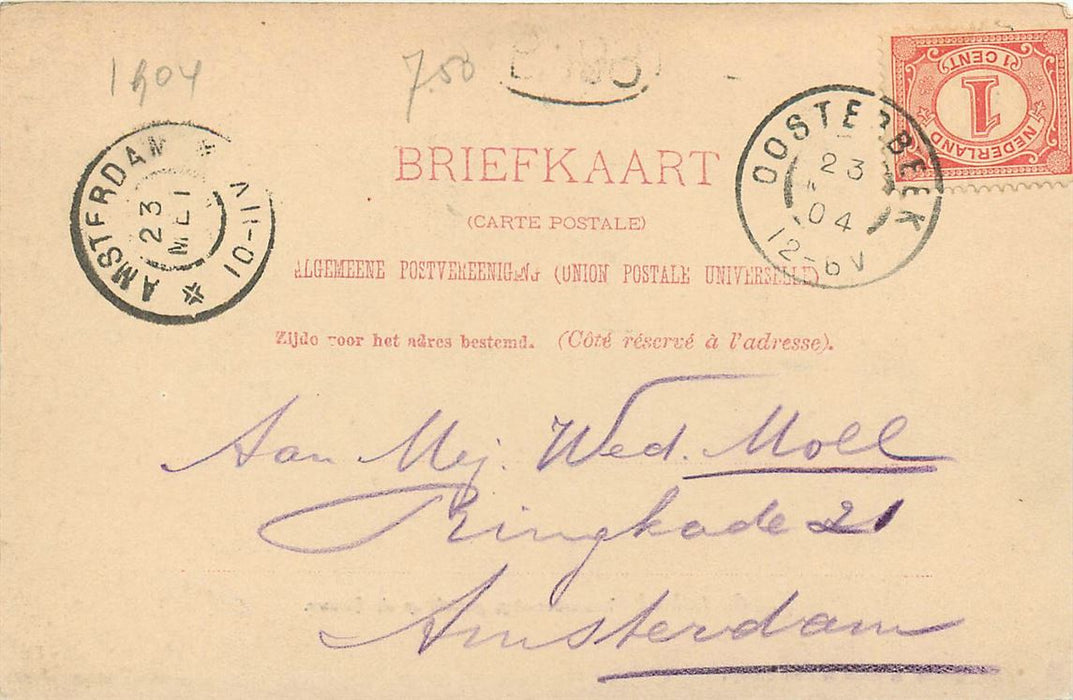 1904
7.50
NEDERLAND
1
1 CENT
OOSTERBEEK
23
04
12-6V
AMSTERDAM
23
MEI
10-11V
BRIEFKAART
(CARTE POSTALE)
ALGEMEENE POSTVEREENIGING (UNION POSTALE UNIVERSELLE)
Zijde voor het adres bestemd. (Côté réservé à l'adresse).
Aan Mej. Wed. Moll
Ringkade 21
Amsterdam